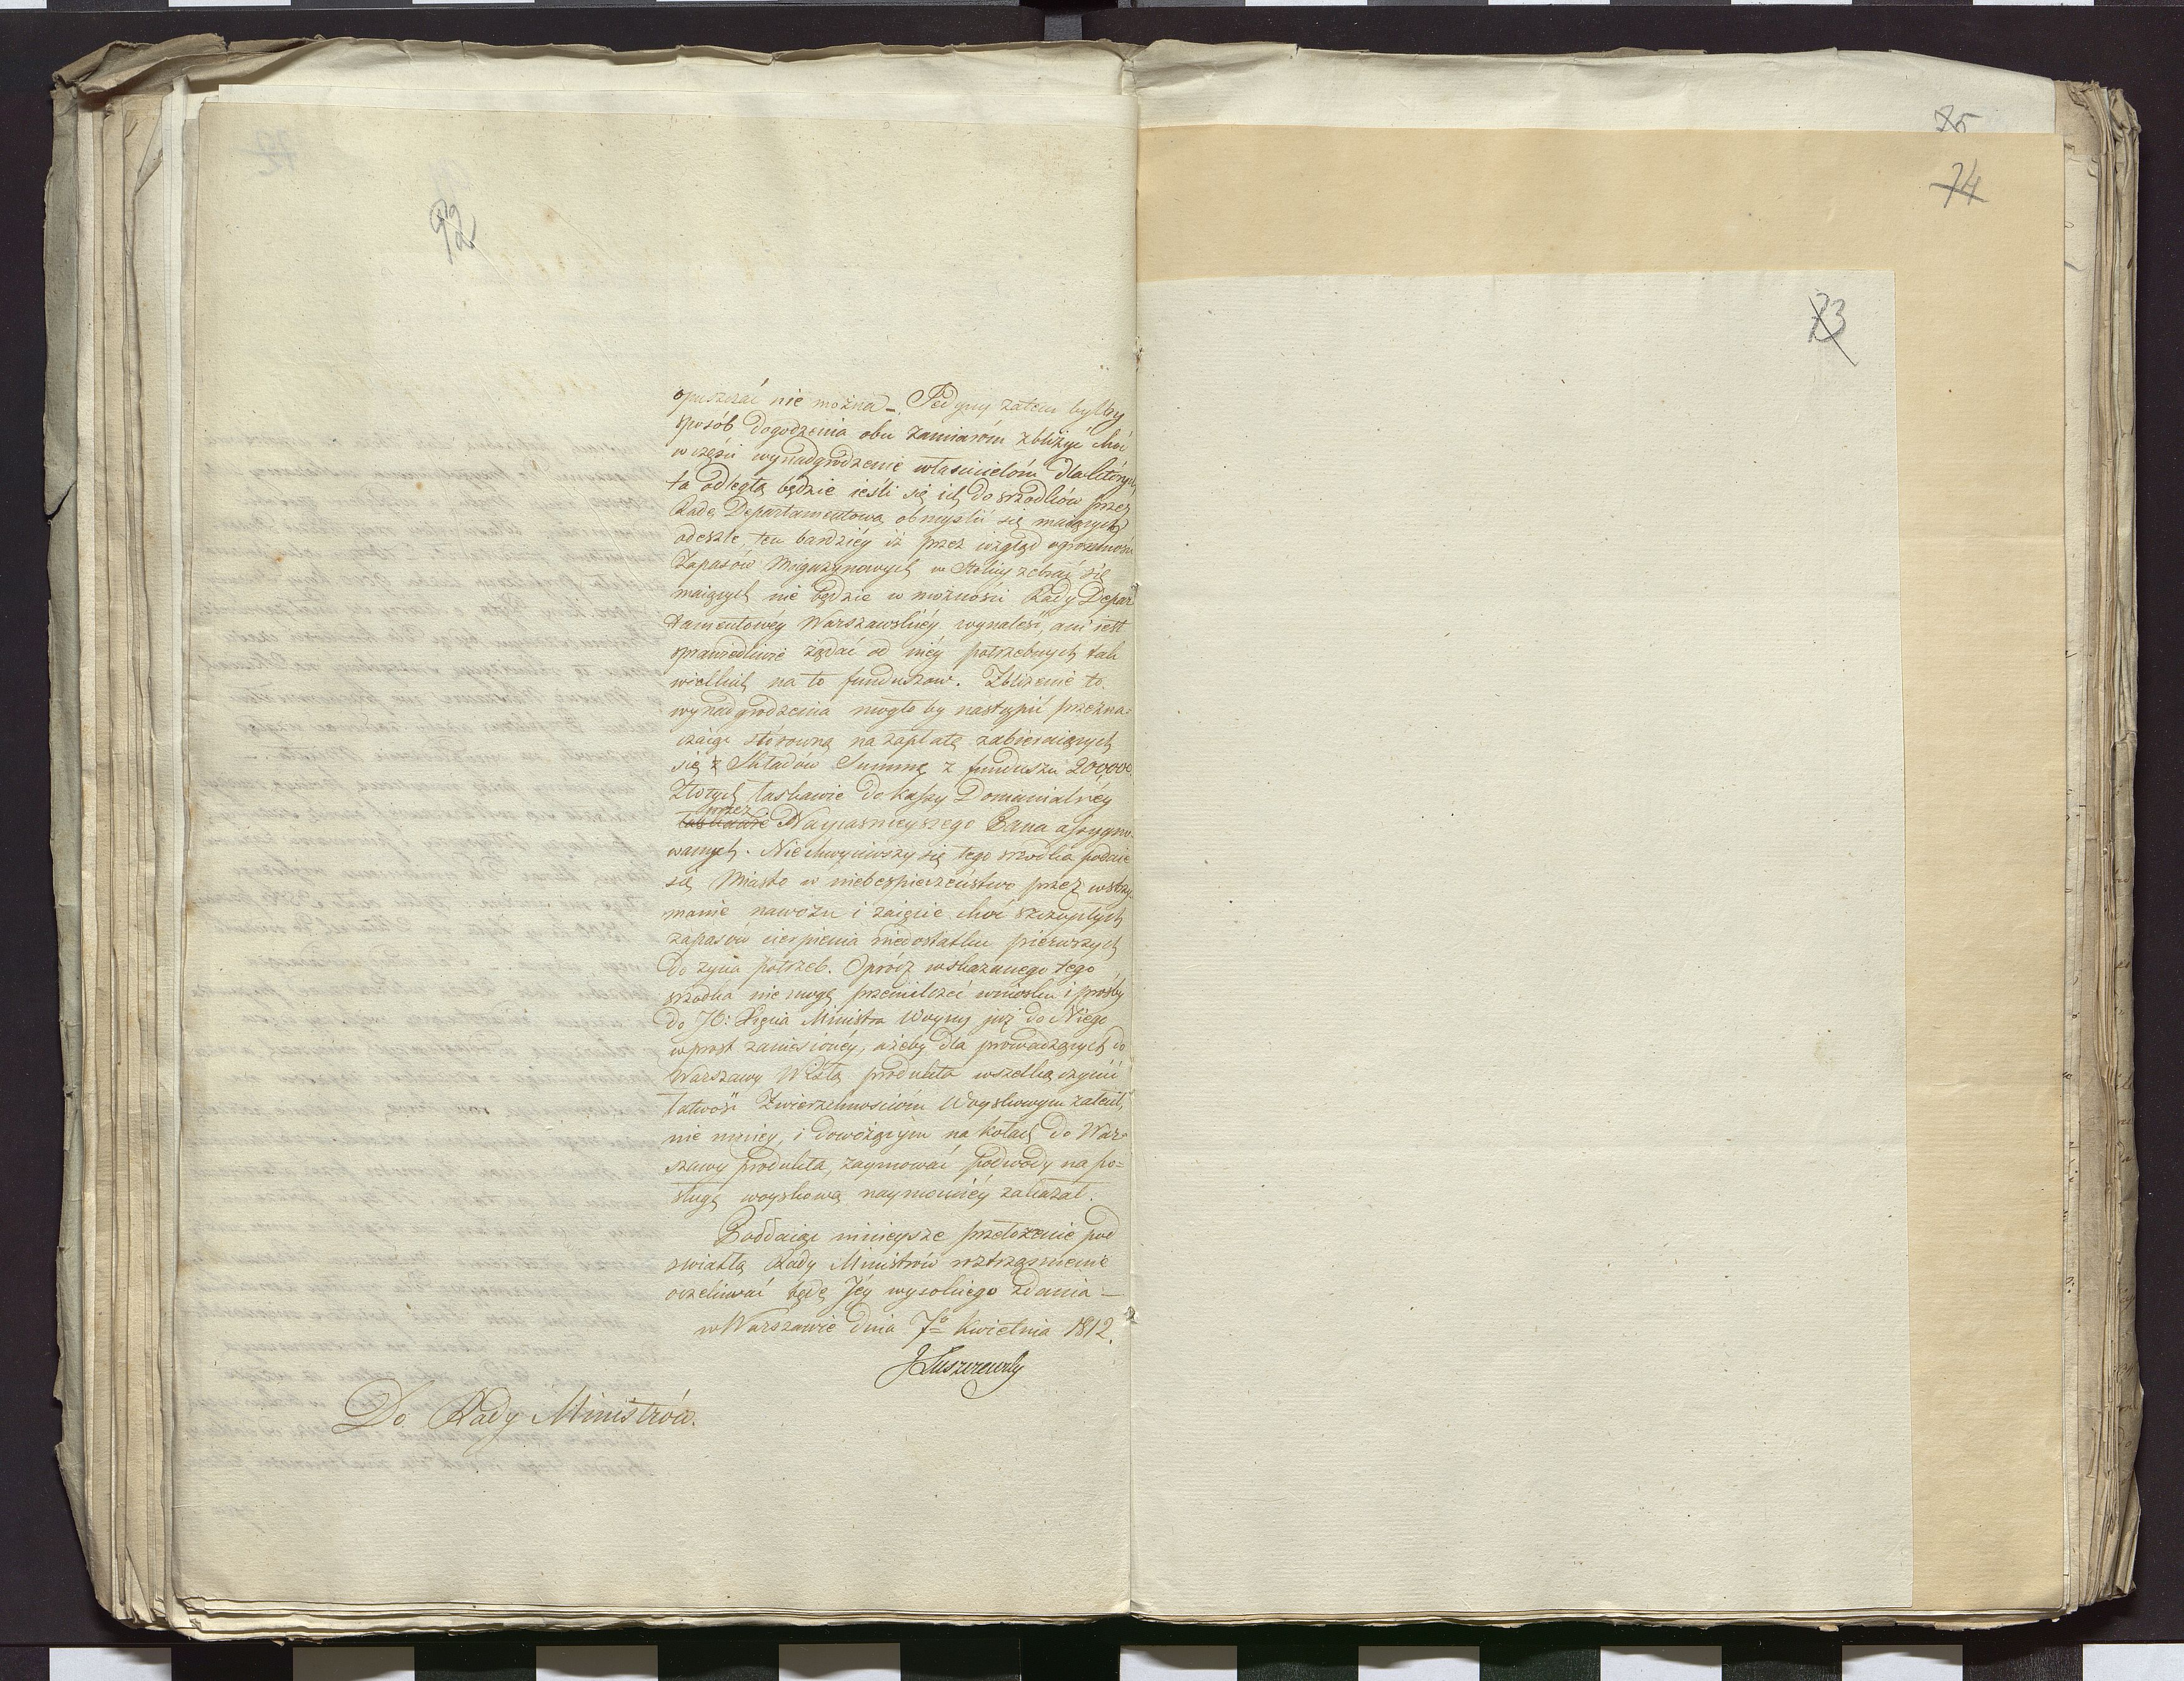 92
opuszczać nie można –. Jedyny zatem byłby
sposób dogodzenia obu zamiarom zbliżyć choć
w części wynadgrodzenie właścicielom dla których
ta odległą będzie ieśli się ich do srzodków przez
Radę Departamentową obmyslić się maiących
odeszle, tem bardziéy iż przez wzgląd ogromności
Zapasów Magazynowych w Stolicy zebrać się
maiących nie będzie w możności Rady Depar
tamentowey Warszawskiéy wynaleść, ani iest
sprawiedliwie żądać od niéy potrzebnych tak
wielkich na to funduszów. Zbliżenie to
wynadgrodzenia mogło by nastąpić przezna=
czaiąc stósowną na zapłatę zabieraiących
się z Składów Summę z funduszu 200,000
Złotych łaskawie do kassy Dominialnéy
przez
łaskawie Nayiasnieyszego Pana assygno=
wanych. Nie chwyciwszy się tego srzodka podaie
się Miasto w niebespieczeństwo przez wstrzy=
manie nawozu i zaięcie choć szczupłych
zapasów cierpienia niedostatku pierwszych
do życia potrzeb. Oprócz wskazanego tego
srzodka nie mogę przemilczeć wniosku i prosby
do JO: Xięcia Ministra Woyny już do Niego
wprost zaniesionéy, ażeby dla prowadzących do
Warszawy Wisłą produkta wszelką czynić
łatwość Zwierzchnosciom Woyskowym zalecił,
nie mniey, i dowożącym na kołach do War=
szawy produkta, zaymować podwody na po=
sługę woyskową naymocniéy zakazał.
Poddaiąc ninieysze przełożenie pod
swiatłą Rady Ministrów roztrząsnienie
oczekiwać będę Jéy wysokiego zdania –
w Warszawie dnia 7o Kwietnia 1812.
JŁuszczewsky
Do Rady Ministrów.
75
74
73